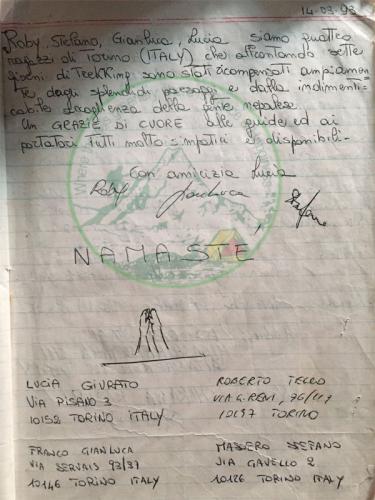 14-03-93
Roby, Stefano, Gianluca, Lucia siamo quattro
ragazzi di Torino (ITALY) che affrontando sette
giorni di Trekking sono stati ricompensati ampiamen
te, dagli splendidi paesaggi e dalla indimenti-
cabile accoglienza della gente nepalese.
Un GRAZIE DI CUORE alle guide ed ai
portatori tutti molto simpatici e disponibili-
Con amicizia Lucia
Roby Gianluca Stefano
NAMASTE
LUCIA GIURATO
VIA PISANO 3
10152 TORINO ITALY
ROBERTO TELLO
VIA G. RENI, 96/117
TORINO
FRANCO GIANLUCA
VIA SERVAIS 92/37
10146 TORINO ITALY
STEFANO
VIA GAVELLO 2
TORINO ITALY